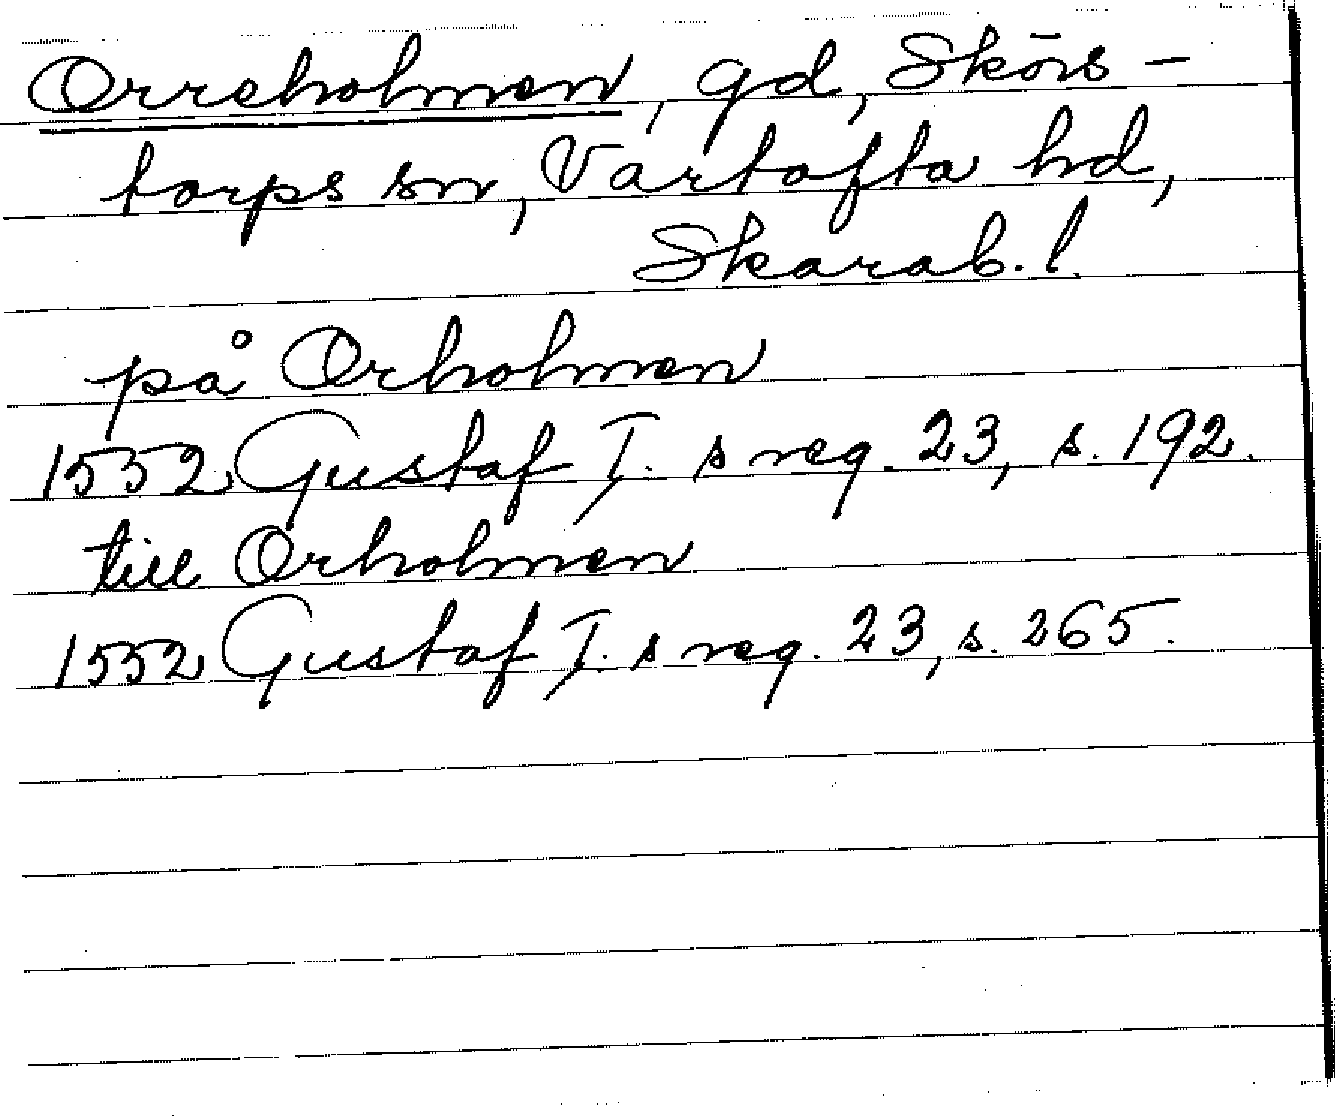 Orreholmen, gd, Skörs-
torps sn, Vartofta hd,
Skarab. l.
på Orholmen
1552 Gustaf I. s reg. 23, s. 192.
till Orholmen
1552 Gustaf I. s reg. 23, s. 265.